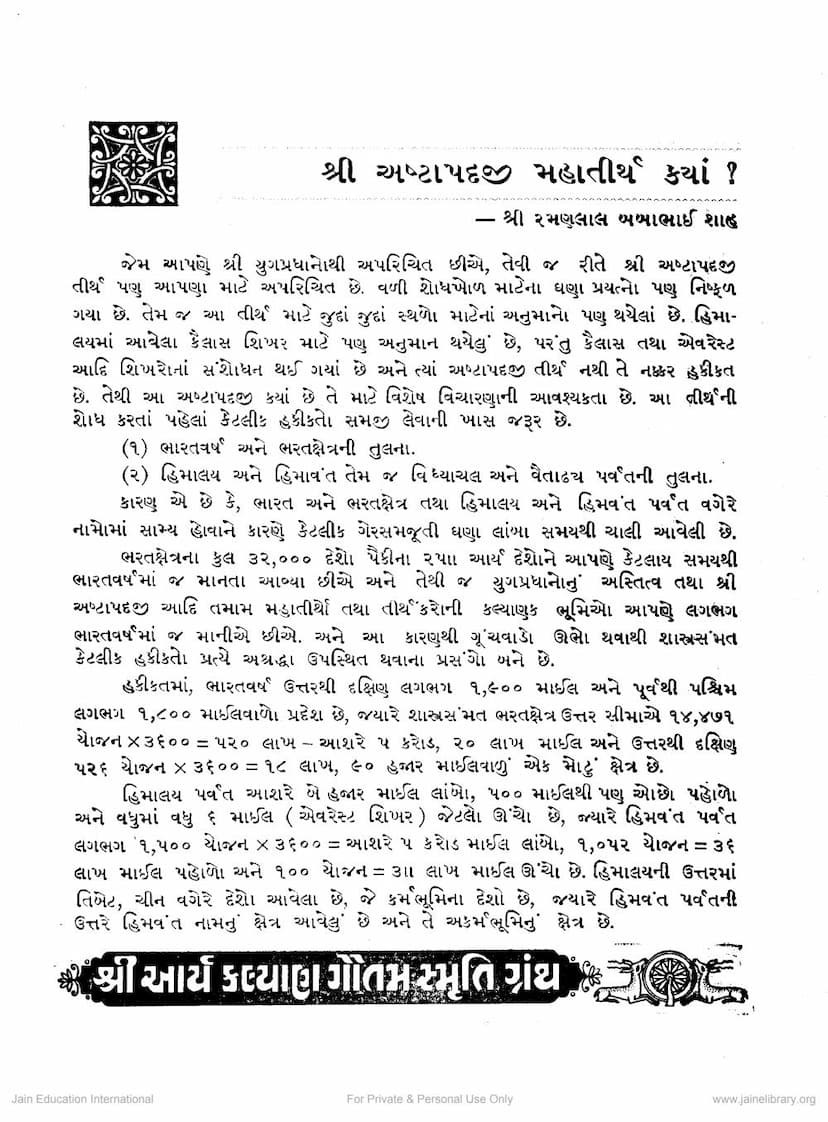 શ્રી અષ્ટાપદજી મહાતીર્થ કયાં ?
— શ્રી રમણલાલ બબાભાઈ શાહ
જેમ આપણે શ્રી યુગપ્રધાનોથી અપરિચિત છીએ, તેવી જ રીતે શ્રી અષ્ટાપદજી
તીર્થ પણ આપણા માટે અપરિચિત છે. વળી શોધખોળ માટેના ઘણા પ્રયત્નો પણ નિષ્ફળ
ગયા છે. તેમ જ આ તીર્થ માટે જુદાં જુદાં સ્થળો માટેનાં અનુમાનો પણ થયેલાં છે. હિમા-
લયમાં આવેલા કૈલાસ શિખર માટે પણ અનુમાન થયેલું છે, પરંતુ કૈલાસ તથા એવરેસ્ટ
આદિ શિખરોનાં સંશોધન થઈ ગયાં છે અને ત્યાં અષ્ટાપદજી તીર્થ નથી તે નક્કર હકીકત
છે. તેથી આ અષ્ટાપદજી કયાં છે તે માટે વિશેષ વિચારણાની આવશ્યકતા છે. આ તીર્થની
શોધ કરતાં પહેલાં કેટલીક હકીકતો સમજી લેવાની ખાસ જરૂર છે.
(૧) ભારતવર્ષ અને ભરતક્ષેત્રની તુલના.
(૨) હિમાલય અને હિમાવંત તેમ જ વિંધ્યાચલ અને વૈતાઢય પર્વતની તુલના.
કારણ એ છે કે, ભારત અને ભરતક્ષેત્ર તથા હિમાલય અને હિમવંત પર્વત વગેરે
નામોમાં સામ્ય હોવાને કારણે કેટલીક ગેરસમજૂતી ઘણા લાંબા સમયથી ચાલી આવેલી છે.
ભરતક્ષેત્રના કુલ ૩૨,૦૦૦ દેશો પૈકીના ૨૫ાા આર્ય દેશોને આપણે કેટલાય સમયથી
ભારતવર્ષમાં જ માનતા આવ્યા છીએ અને તેથી જ યુગપ્રધાનોનું અસ્તિત્વ તથા શ્રી
અષ્ટાપદજી આદિ તમામ મહાતીર્થો તથા તીર્થંકરોની કલ્યાણક ભૂમિઓ આપણે લગભગ
ભારતવર્ષમાં જ માનીએ છીએ. અને આ કારણથી ગૂંચવાડો ઊભો થવાથી શાસ્ત્રસંમત
કેટલીક હકીકતો પ્રત્યે અશ્રદ્ધા ઉપસ્થિત થવાના પ્રસંગો બને છે.
હકીકતમાં, ભારતવર્ષ ઉત્તરથી દક્ષિણ લગભગ ૧,૯૦૦ માઈલ અને પૂર્વથી પશ્ચિમ
લગભગ ૧,૮૦૦ માઈલવાળો પ્રદેશ છે, જ્યારે શાસ્ત્રસંમત ભરતક્ષેત્ર ઉત્તર સીમાએ ૧૪,૪૭૧
યોજન × ૩૬૦૦ = ૫૨૦ લાખ – આશરે ૫ કરોડ, ૨૦ લાખ માઈલ અને ઉત્તરથી દક્ષિણ
૫૨૬ યોજન × ૩૬૦૦ = ૧૮ લાખ, ૯૦ હજાર માઈલવાળું એક મોટું ક્ષેત્ર છે.
હિમાલય પર્વત આશરે બે હજાર માઈલ લાંબો, ૫૦૦ માઈલથી પણ ઓછો પહોળો
અને વધુમાં વધુ ૬ માઈલ ( એવરેસ્ટ શિખર ) જેટલો ઊંચો છે, જ્યારે હિમવંત પર્વત
લગભગ ૧,૫૦૦ યોજન × ૩૬૦૦ = આશરે ૫ કરોડ માઈલ લાંબો, ૧,૦૫૨ યોજન = ૩૬
લાખ માઈલ પહોળો અને ૧૦૦ યોજન = ૩ાા લાખ માઈલ ઊંચો છે. હિમાલયની ઉત્તરમાં
તિબેટ, ચીન વગેરે દેશો આવેલા છે, જે કર્મભૂમિના દેશો છે, જ્યારે હિમવંત પર્વતની
ઉત્તરે હિમવંત નામનું ક્ષેત્ર આવેલું છે અને તે અકર્મભૂમિનું ક્ષેત્ર છે.
શ્રી આર્ય કલ્યાણ ગૌતમ સ્મૃતિ ગ્રંથ
Jain Education International
For Private & Personal Use Only
www.jainelibrary.org